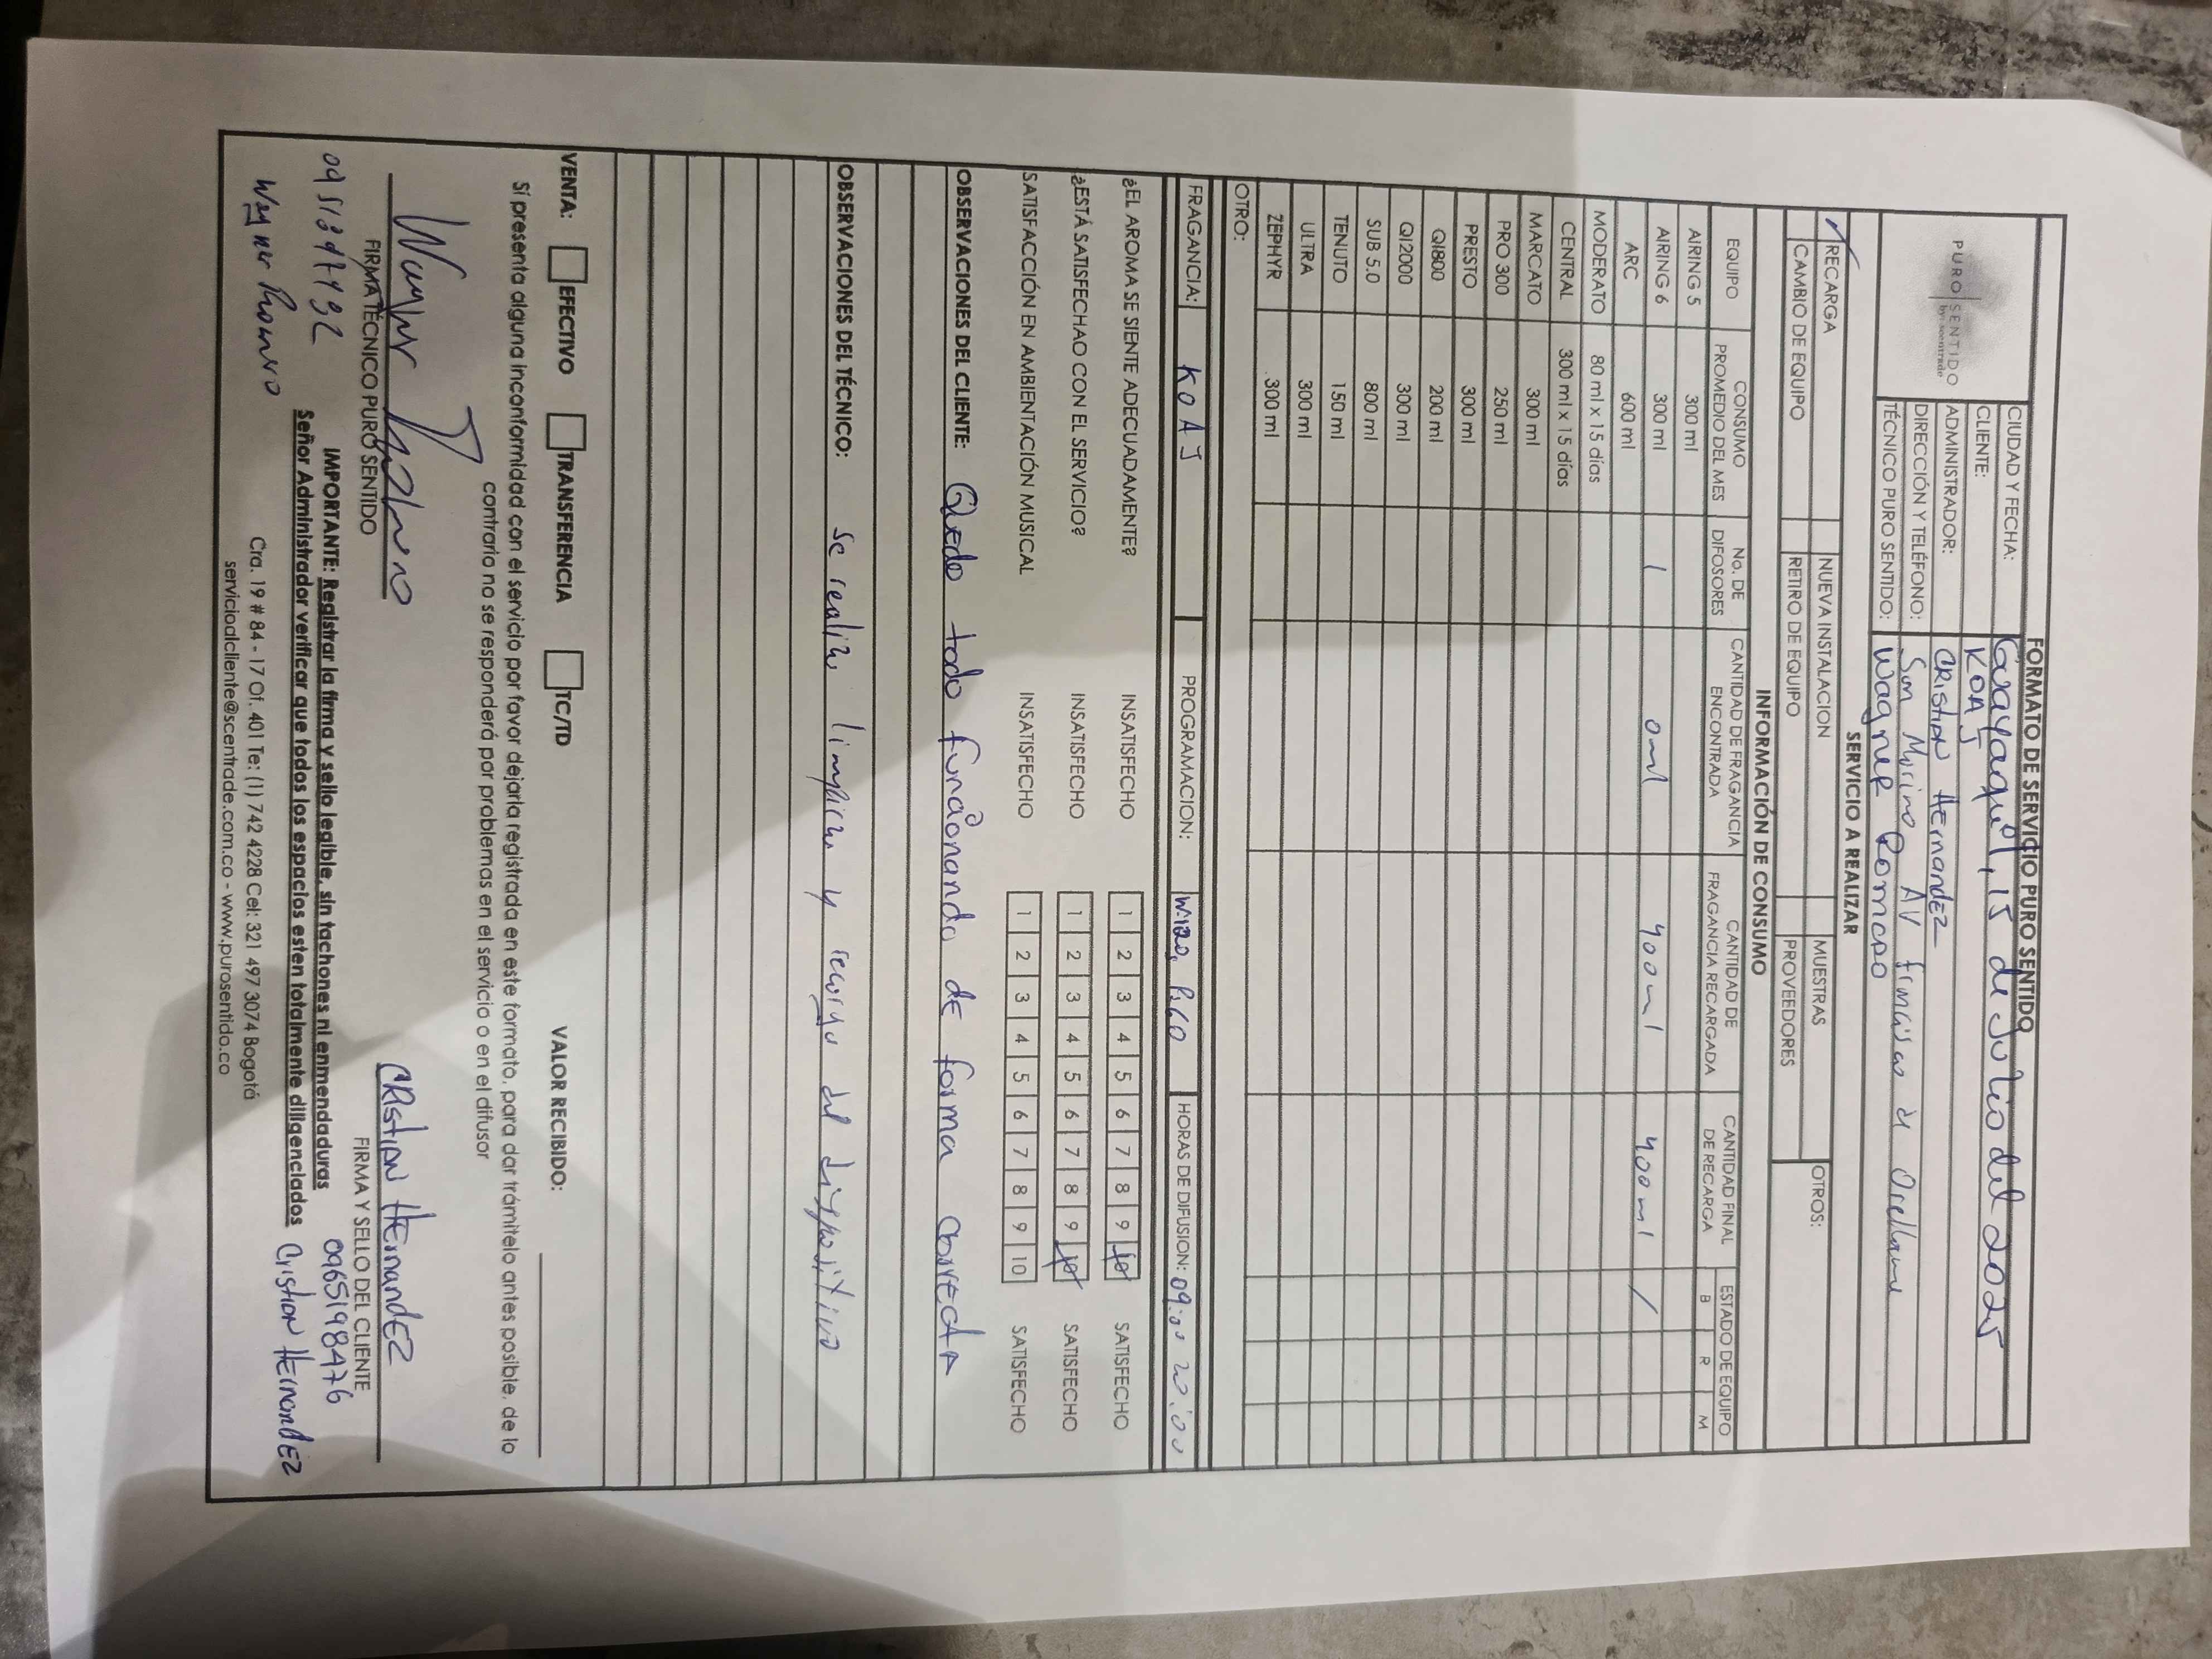 FORMATO DE SERVICIO PURO SENTIDO
PURO SENTIDO
by: scentrade
CIUDAD Y FECHA: Guayaquil, 15 de Julio del 2025
CLIENTE: KOAJ
ADMINISTRADOR: CRistian HernandEz
DIRECCIÓN Y TELÉFONO: San Marino AV francisco de Orellana
TÉCNICO PURO SENTIDO: Wagner Romero
SERVICIO A REALIZAR
✓ RECARGA NUEVA INSTALACION MUESTRAS OTROS:
CAMBIO DE EQUIPO RETIRO DE EQUIPO PROVEEDORES
INFORMACIÓN DE CONSUMO
EQUIPO CONSUMO PROMEDIO DEL MES No. DE DIFOSORES CANTIDAD DE FRAGANCIA ENCONTRADA CANTIDAD DE FRAGANCIA RECARGADA CANTIDAD FINAL DE RECARGA ESTADO DE EQUIPO B R M
AIRING 5 300 ml
AIRING 6 300 ml 1 0ml 400ml 400ml /
ARC 600 ml
MODERATO 80 ml x 15 días
CENTRAL 300 ml x 15 días
MARCATO 300 ml
PRO 300 250 ml
PRESTO 300 ml
QI800 200 ml
QI2000 300 ml
SUB 5.0 800 ml
TENUTO 150 ml
ULTRA 300 ml
ZEPHYR 300 ml
OTRO:
FRAGANCIA: KOAJ PROGRAMACION: W120, P.60 HORAS DE DIFUSION: 09:00 20:00
¿EL AROMA SE SIENTE ADECUADAMENTE? INSATISFECHO 1 2 3 4 5 6 7 8 9 10 SATISFECHO
¿ESTÁ SATISFECHAO CON EL SERVICIO? INSATISFECHO 1 2 3 4 5 6 7 8 9 10 SATISFECHO
SATISFACCIÓN EN AMBIENTACIÓN MUSICAL INSATISFECHO 1 2 3 4 5 6 7 8 9 10 SATISFECHO
OBSERVACIONES DEL CLIENTE: Quedo todo funcionando de forma correcta
OBSERVACIONES DEL TÉCNICO: Se realiza limpieza y recarga del dispositivo
VENTA: EFECTIVO TRANSFERENCIA TC/TD VALOR RECIBIDO:
Si presenta alguna inconformidad con el servicio por favor dejarla registrada en este formato, para dar trámitelo antes posible, de lo
contrario no se responderá por problemas en el servicio o en el difusor
Wagner Romero CRistian HernandEz
FIRMA TÉCNICO PURO SENTIDO FIRMA Y SELLO DEL CLIENTE
0965198476
IMPORTANTE: Registrar la firma y sello legible, sin tachones ni enmendaduras
Señor Administrador verificar que todos los espacios esten totalmente diligenciados
Wagner Romero Cristian HernandEz
Cra. 19 # 84 - 17 Of. 401 Te: (1) 742 4228 Cel: 321 497 3074 Bogotá
servicioalcliente@scentrade.com.co - www.purosentido.co